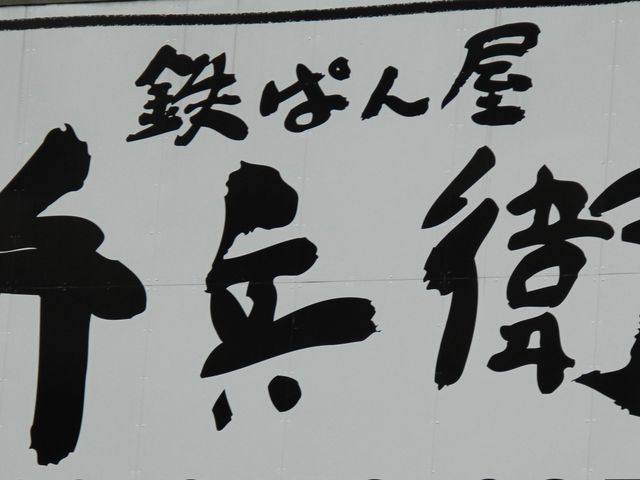 鉄ぱん屋
千兵衛